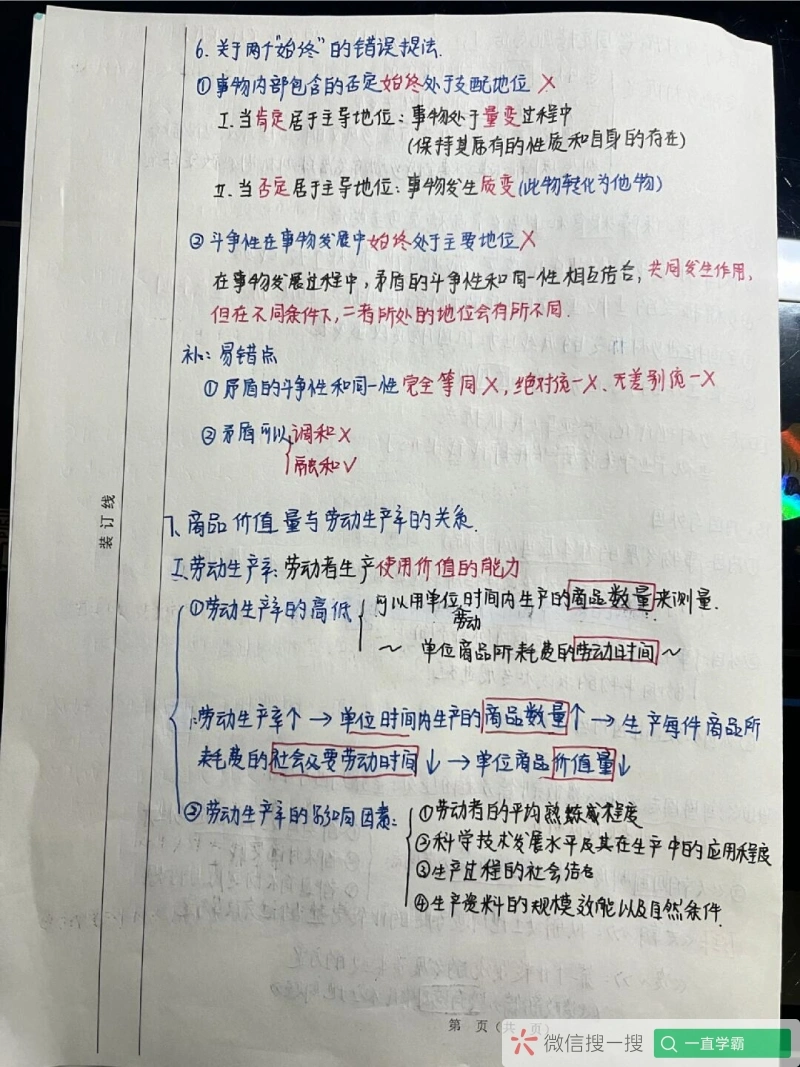 6. 关于两个"始终"的错误提法.
①事物内部包含的否定始终处于支配地位 X
I. 当肯定居于主导地位：事物处于量变过程中
(保持其原有的性质和自身的存在)
II. 当否定居于主导地位：事物发生质变(此物转化为他物)
②斗争性在事物发展中始终处于主要地位 X
在事物发展过程中，矛盾的斗争性和同一性相互结合，共同发生作用，
但在不同条件下，二者所处的地位会有所不同.
补：易错点
①矛盾的斗争性和同一性完全等同 X，绝对统一 X、无差别统一 X
②矛盾可以 调和 X
融和 √
装订线
7. 商品价值量与劳动生产率的关系.
I. 劳动生产率：劳动者生产使用价值的能力
①劳动生产率的高低 可以用单位时间内生产的商品数量来测量.
劳动
～ 单位商品所耗费的劳动时间 ～
∴劳动生产率↑ → 单位时间内生产的商品数量↑ → 生产每件商品所
耗费的社会必要劳动时间↓ → 单位商品价值量↓
②劳动生产率的影响因素： ①劳动者的平均熟练程度
②科学技术发展水平及其在生产中的应用程度
③生产过程的社会结合
④生产资料的规模效能以及自然条件.
第 页（共 页）
微信搜一搜 一直学霸